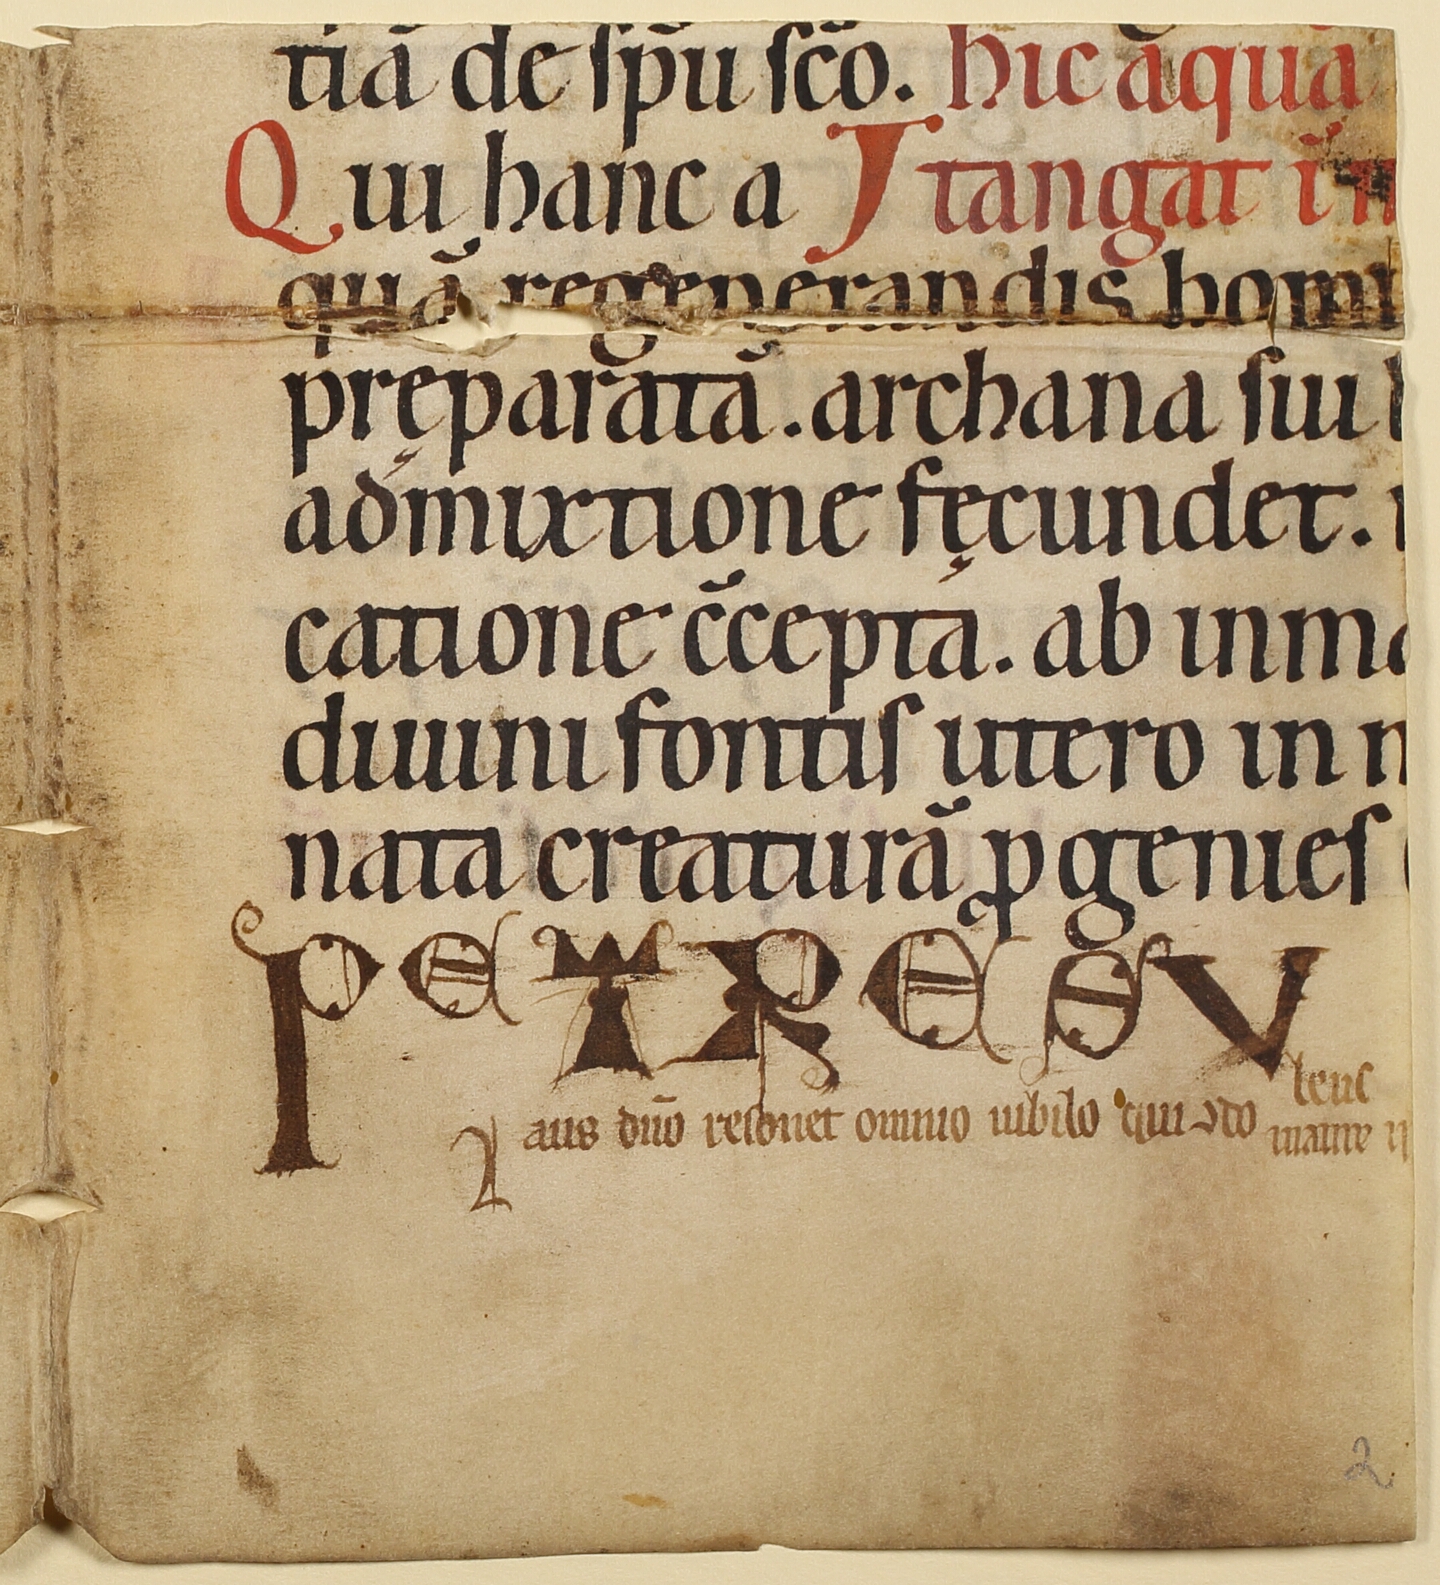 tiā de sp̄u sc̄o. hic āquā
Qui hanc a J tangat
quā regenerandis homi
pręparatā. archana sui l
admixtione fęcundet.
catione c̄cepta. ab inma
diuini fontis utero in n
nata creaturā ꝓgenies
PETRESV
aus dn̄o resonet omnio iubilo qui ↄdo
leuc
2